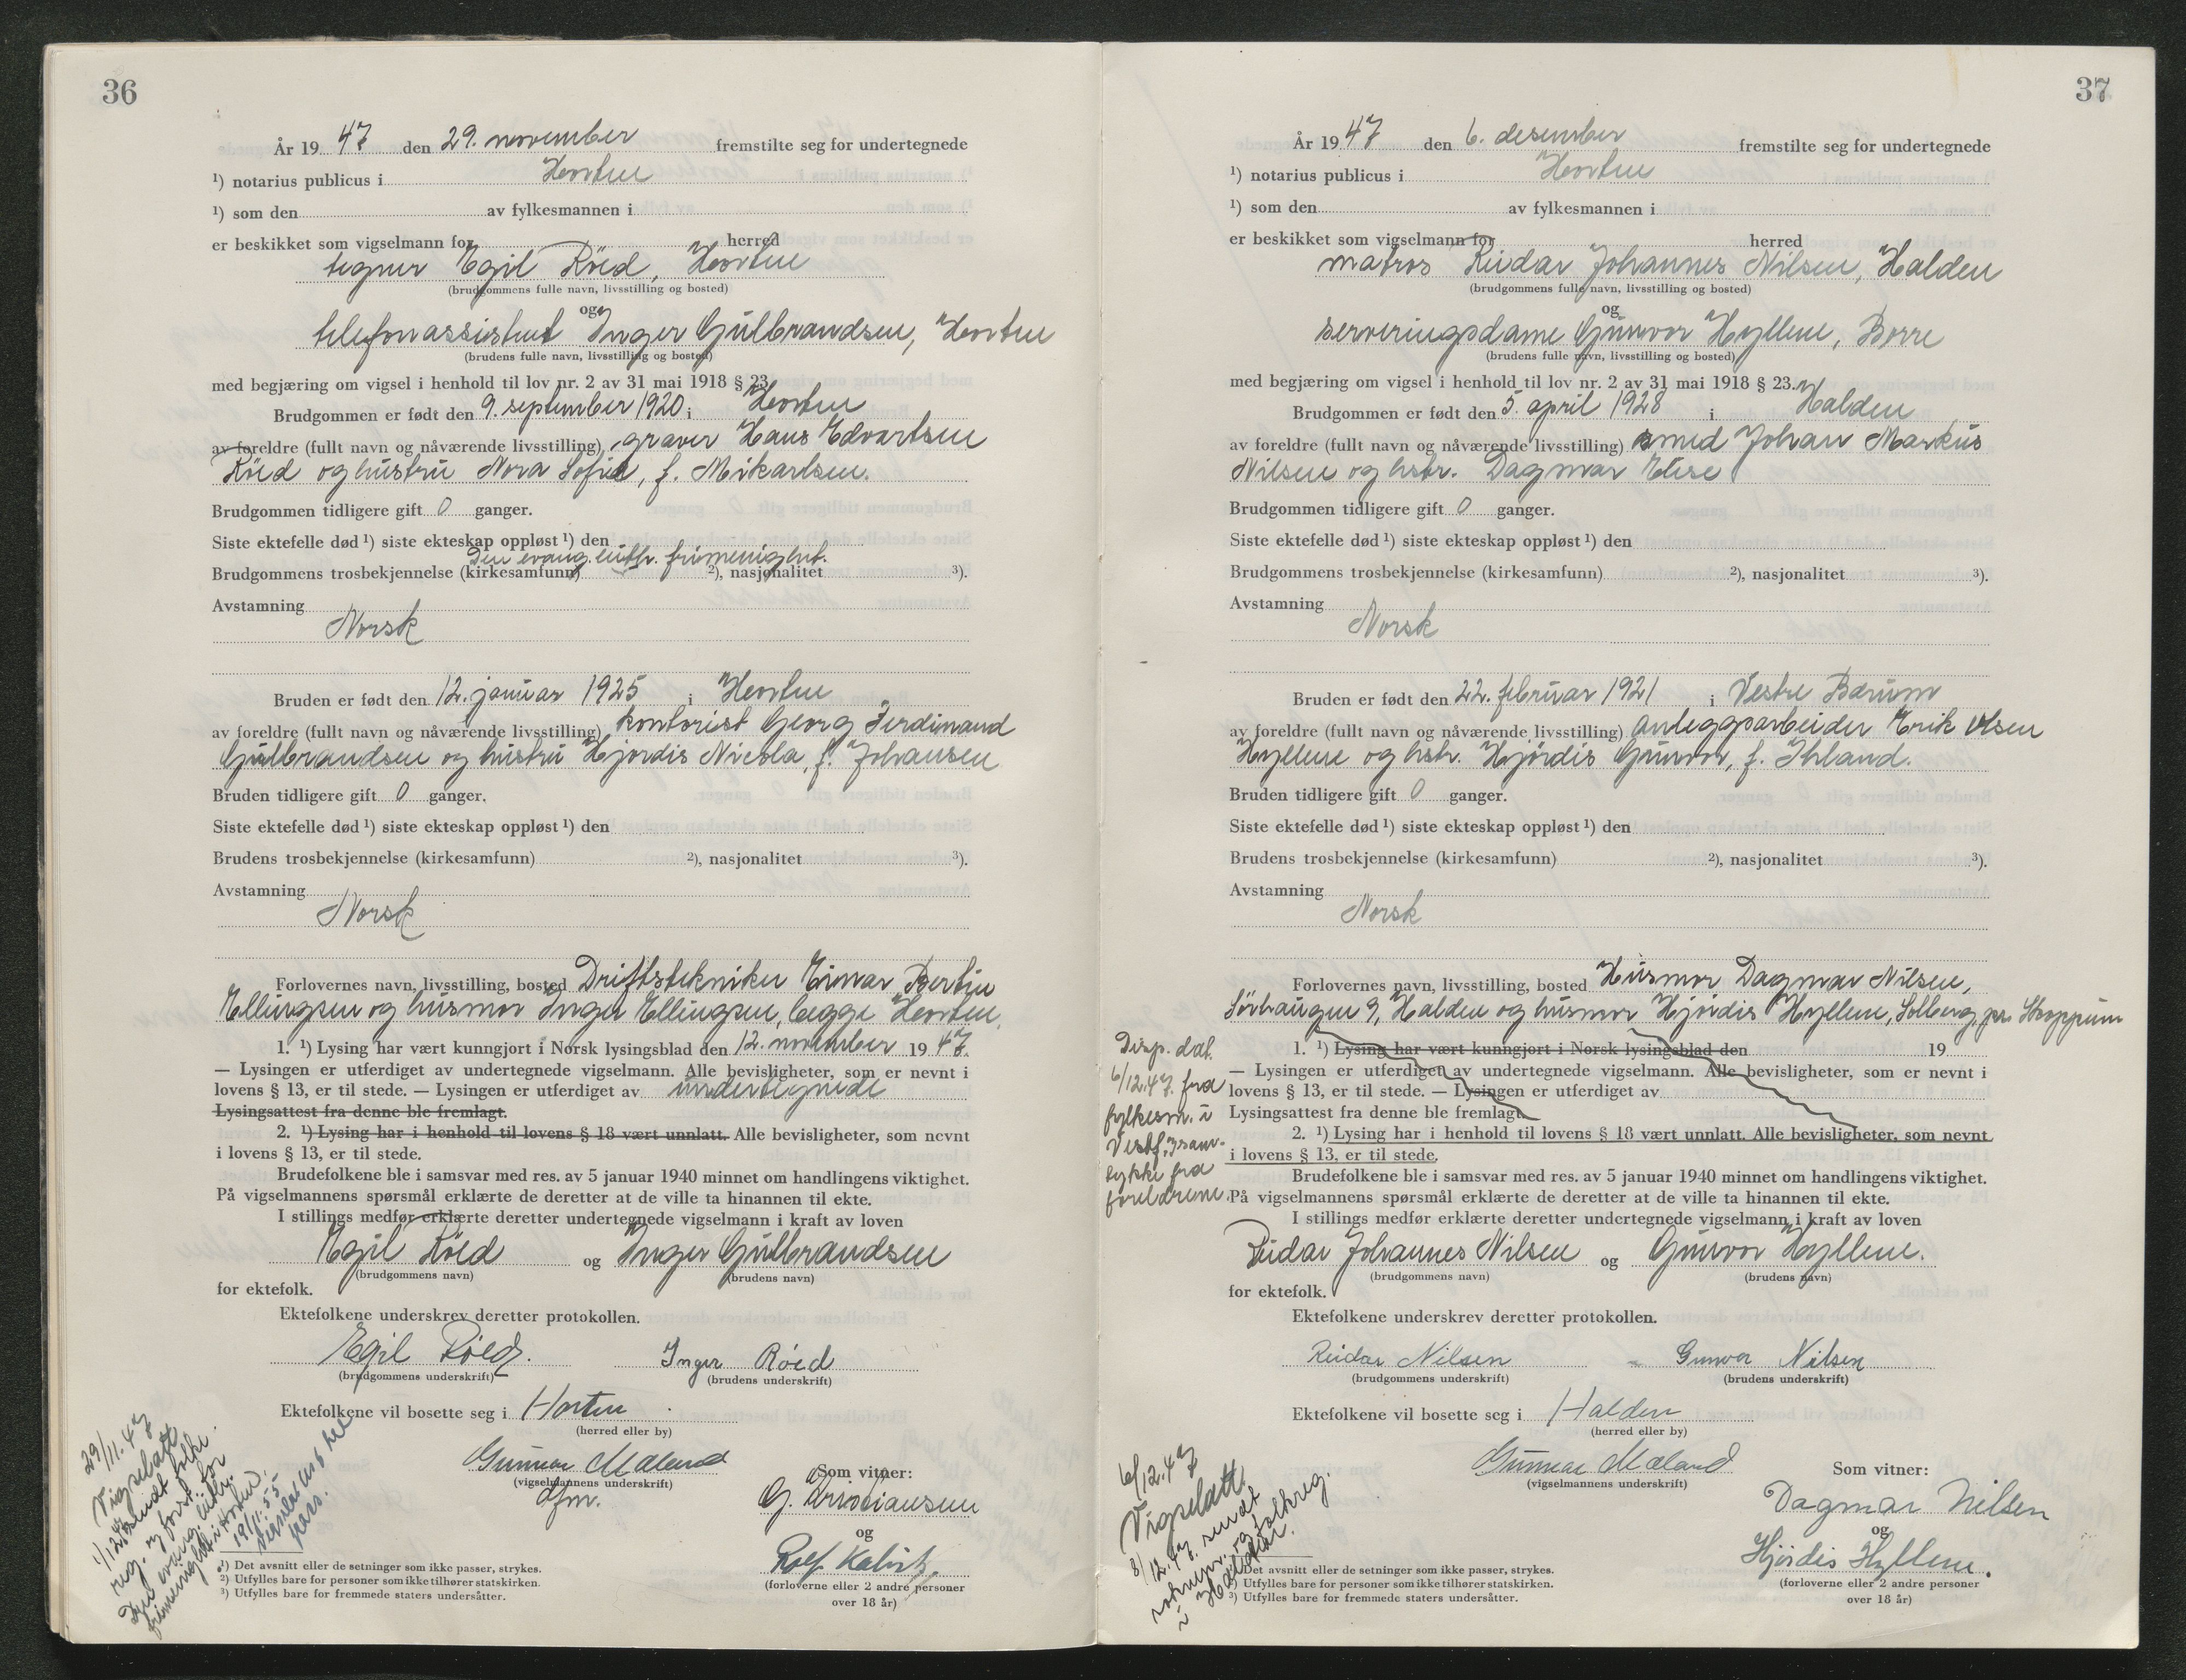 36
År 19 47 den 29. november fremstilte seg for undertegnede
¹) notarius publicus i Horten
¹) som den av fylkesmannen i
er beskikket som vigselmann for herred
tegner Egil Röed, Horten
(brudgommens fulle navn, livsstilling og bosted)
og
telefonassistent Inger Gulbrandsen, Horten
(brudens fulle navn, livsstilling og bosted)
med begjæring om vigsel i henhold til lov nr. 2 av 31 mai 1918 § 23.
Brudgommen er født den 9. september 1920 i Horten
av foreldre (fullt navn og nåværende livsstilling) graver Hans Edvartsen
Röed og hustru Nora Sofie, f. Mikartsen.
Brudgommen tidligere gift 0 ganger.
Siste ektefelle død ¹) siste ekteskap oppløst ¹) den
Den evang. luth. frimenighet.
Brudgommens trosbekjennelse (kirkesamfunn) ²), nasjonalitet ³).
Avstamning
Norsk
Bruden er født den 12. januar 1925 i Horten
av foreldre (fullt navn og nåværende livsstilling) kontorist Georg Ferdinand
Gulbrandsen og hustru Hjordis Nicola, f. Johansen
Bruden tidligere gift 0 ganger.
Siste ektefelle død ¹) siste ekteskap oppløst ¹) den
Brudens trosbekjennelse (kirkesamfunn) ²), nasjonalitet ³).
Avstamning
Norsk
Forlovernes navn, livsstilling, bosted Driftstekniker Einar Bertin
Ellingsen og husmor Inger Ellingsen, begge Horten.
1. ¹) Lysing har vært kunngjort i Norsk lysingsblad den 12. november 19 47.
— Lysingen er utferdiget av undertegnede vigselmann. Alle bevisligheter, som er nevnt i
lovens § 13, er til stede. — Lysingen er utferdiget av undertegnede
Lysingsattest fra denne ble fremlagt.
2. ¹) Lysing har i henhold til lovens § 18 vært unnlatt. Alle bevisligheter, som nevnt
i lovens § 13, er til stede.
Brudefolkene ble i samsvar med res. av 5 januar 1940 minnet om handlingens viktighet.
På vigselmannens spørsmål erklærte de deretter at de ville ta hinannen til ekte.
I stillings medfør erklærte deretter undertegnede vigselmann i kraft av loven
Egil Röed og Inger Gulbrandsen
(brudgommens navn) (brudens navn)
for ektefolk.
Ektefolkene underskrev deretter protokollen.
Egil Röed. Inger Röed
(brudgommens underskrift) (brudens underskrift)
Ektefolkene vil bosette seg i Horten
(herred eller by)
Gunnar Mæland
(vigselmannens underskrift)
dfm.
Som vitner:
G. Kristiansen
og
Rolf
(forloverne eller 2 andre personer
over 18 år)
29/11.47
Vigselatt.
1/12.47 sendt folke-
reg. og forst. for
Den evang. luth.
frimenighet i Horten.
19/11.55
¹) Det avsnitt eller de setninger som ikke passer, strykes.
²) Utfylles bare for personer som ikke tilhører statskirken.
³) Utfylles bare for fremmede staters undersåtter.
37
År 19 47 den 6. desember fremstilte seg for undertegnede
¹) notarius publicus i Horten
¹) som den av fylkesmannen i
er beskikket som vigselmann for herred
matros Reidar Johannes Nilsen, Halden
(brudgommens fulle navn, livsstilling og bosted)
og
serveringsdame Gunvor Hyllene, Borre
(brudens fulle navn, livsstilling og bosted)
med begjæring om vigsel i henhold til lov nr. 2 av 31 mai 1918 § 23.
Brudgommen er født den 5. april 1928 i Halden
av foreldre (fullt navn og nåværende livsstilling) smed Johan Markus
Nilsen og hstr. Dagmar Elise
Brudgommen tidligere gift 0 ganger.
Siste ektefelle død ¹) siste ekteskap oppløst ¹) den
Brudgommens trosbekjennelse (kirkesamfunn) ²), nasjonalitet ³).
Avstamning
Norsk
Bruden er født den 22. februar 1921 i Vestre Bærum
av foreldre (fullt navn og nåværende livsstilling) anleggsarbeider Erik Olsen
Hyllene og hstr. Hjördis Gunvor, f. Ihland.
Bruden tidligere gift 0 ganger.
Siste ektefelle død ¹) siste ekteskap oppløst ¹) den
Brudens trosbekjennelse (kirkesamfunn) ²), nasjonalitet ³).
Avstamning
Norsk
Forlovernes navn, livsstilling, bosted Husmor Dagmar Nilsen,
Sörhaugen 9, Halden og husmor Hjördis Hyllene, Solberg, pr. Skoppum
1. ¹) Lysing har vært kunngjort i Norsk lysingsblad den 19
— Lysingen er utferdiget av undertegnede vigselmann. Alle bevisligheter, som er nevnt i
lovens § 13, er til stede. — Lysingen er utferdiget av
Lysingsattest fra denne ble fremlagt.
2. ¹) Lysing har i henhold til lovens § 18 vært unnlatt. Alle bevisligheter, som nevnt
i lovens § 13, er til stede.
Disp. dat.
6/12.47. fra
fylkesm. i
Vestf., sam-
tykke fra
foreldrene.
Brudefolkene ble i samsvar med res. av 5 januar 1940 minnet om handlingens viktighet.
På vigselmannens spørsmål erklærte de deretter at de ville ta hinannen til ekte.
I stillings medfør erklærte deretter undertegnede vigselmann i kraft av loven
Reidar Johannes Nilsen og Gunvor Hyllene.
(brudgommens navn) (brudens navn)
for ektefolk.
Ektefolkene underskrev deretter protokollen.
Reidar Nilsen Gunvor Nilsen
(brudgommens underskrift) (brudens underskrift)
Ektefolkene vil bosette seg i Halden
(herred eller by)
Gunnar Mæland
(vigselmannens underskrift)
Som vitner:
Dagmar Nilsen
og
Hjördis Hyllene.
(forloverne eller 2 andre personer
over 18 år)
6/12.47
Vigselatt.
8/12.47. sendt
soknepr. og folkreg.
i Halden.
¹) Det avsnitt eller de setninger som ikke passer, strykes.
²) Utfylles bare for personer som ikke tilhører statskirken.
³) Utfylles bare for fremmede staters undersåtter.